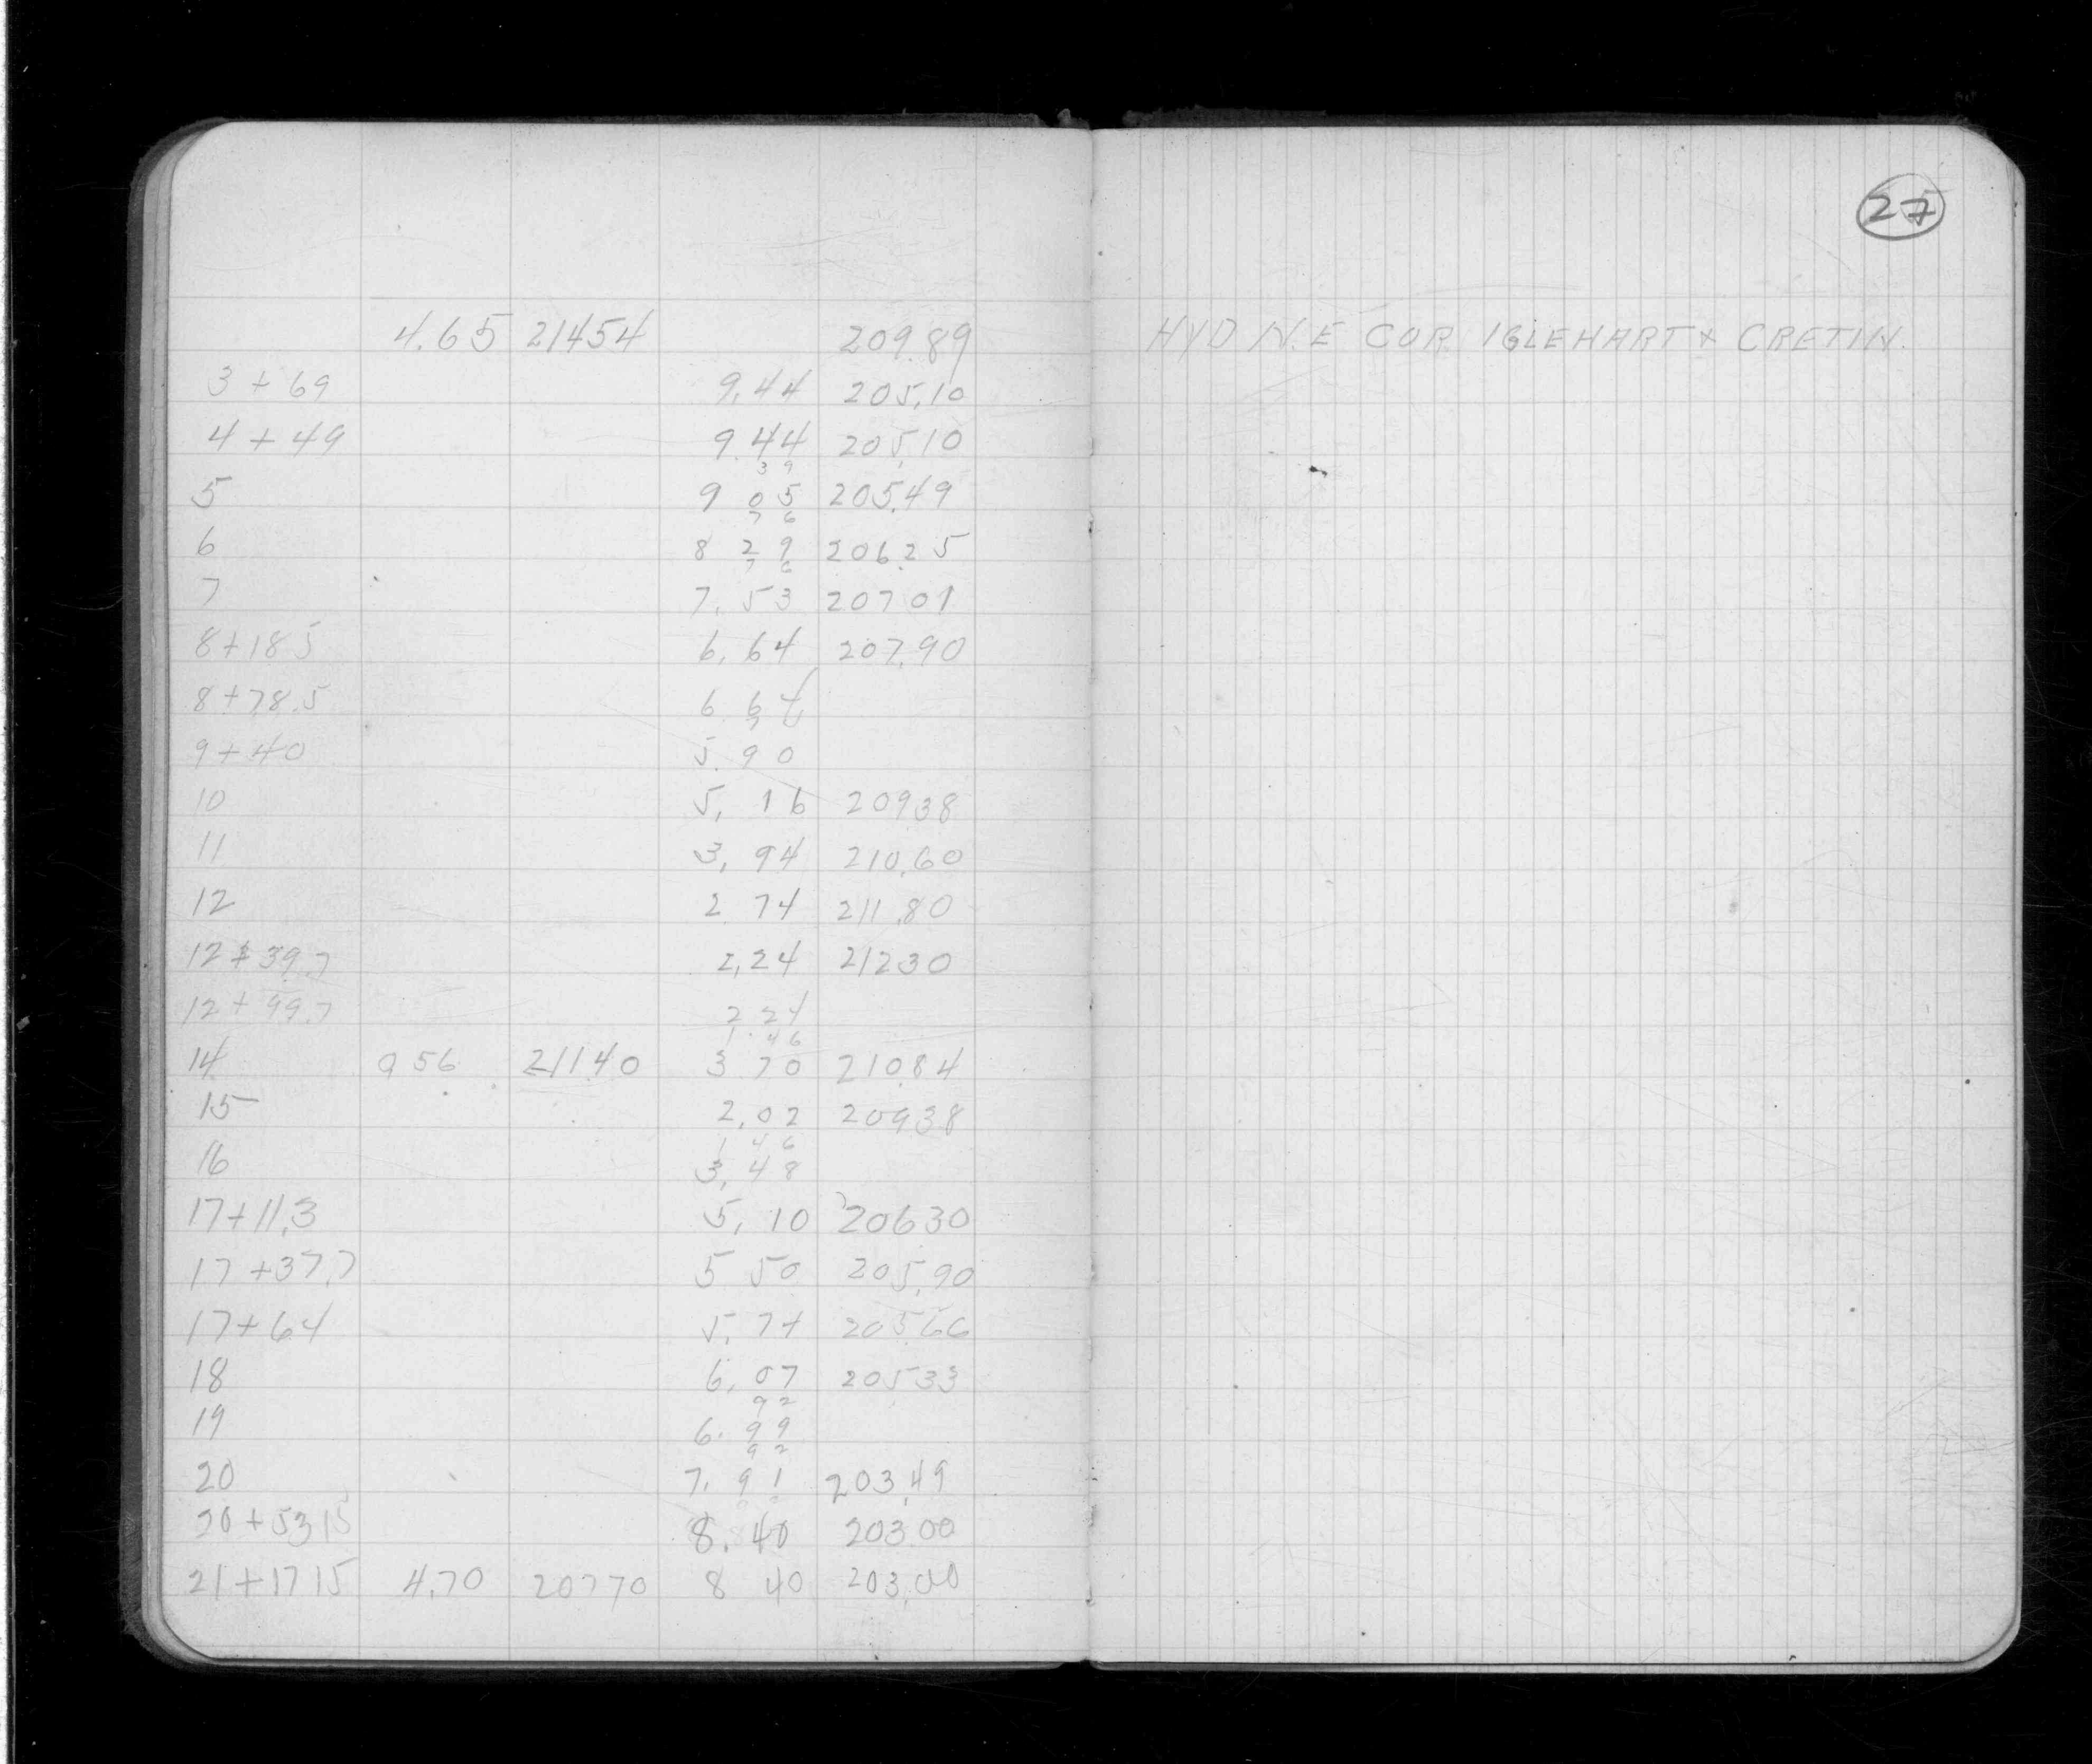 27
4.65 21454 209.89 HYD N.E COR IGLEHART & CRETIN.
3 + 69 9.44 205.10
4 + 49 9.44 205.10
3 9
5 9 05 205.49
7 6
6 8 29 206.25
7 6
7 7.53 207 01
8+18 5 6.64 207.90
8+78.5 6 64
7
9+40 5.90
10 5.16 20938
11 3.94 210.60
12 2 74 211.80
12 + 39.7 2.24 21230
12 + 99.7 2 24
1 46
14 0 56 211.40 3 70 210.84
15 2.02 20938
1 4 6
16 3.48
17+11.3 5.10 20630
17+37.7 5 50 205.90
17+64 5.74 205.66
18 6.07 20533
9 2
19 6.99
9 2
20 7.91 203.49
20+5315 8.40 203.00
21+1715 4.70 20770 8 40 203.00